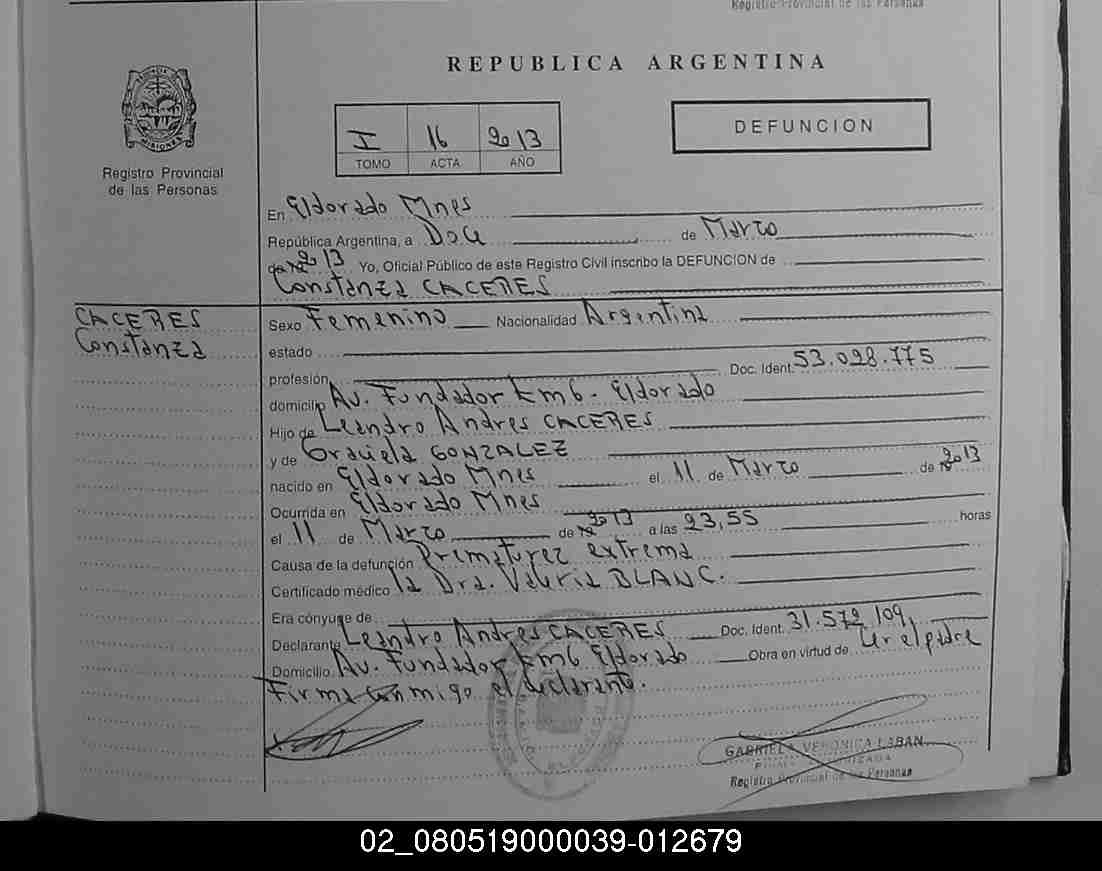 Registro Provincial de las Personas
REPUBLICA ARGENTINA
I 16 2013
TOMO ACTA AÑO
DEFUNCION
PROVINCIA DE
MISIONES
Registro Provincial
de las Personas
En Eldorado Mnes
República Argentina, a Doce de Marzo
de 2013 Yo, Oficial Público de este Registro Civil inscribo la DEFUNCION de
Constanza CACERES
CACERES
Constanza
Sexo Femenino Nacionalidad Argentina
estado
profesión Doc. Ident. 53.098.775
domicilio Av. Fundador Km6 - Eldorado
Hijo de Leandro Andres CACERES
y de Graciela GONZALEZ
nacido en Eldorado Mnes el 11 de Marzo de 2013
Ocurrida en Eldorado Mnes
el 11 de Marzo de 2013 a las 23,55 horas
Causa de la defunción Prematurez extrema
Certificado médico la Dra. Valeria BLANC.
Era cónyuge de
Declarante Leandro Andres CACERES Doc. Ident. 31.572.109,
Domicilio Av. Fundador Km6 Eldorado Obra en virtud de ser el padre
Firma conmigo el declarante.
GABRIELA VERONICA LABAN
Registro Provincial de las Personas
02_080519000039-012679